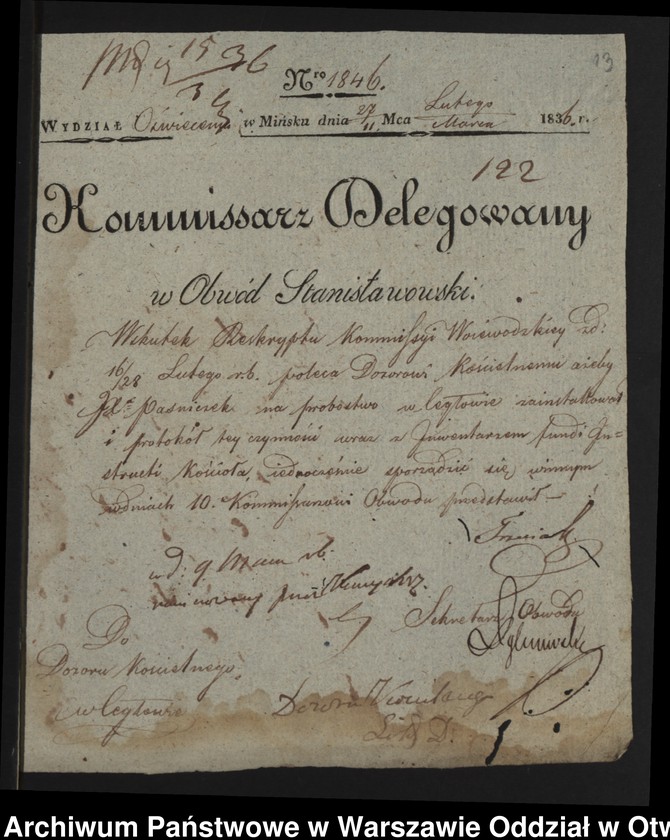 15 36
3
13
Nro 1846.
WYDZIAŁ Oświecenia w Mińsku dnia 27/11 Mca Lutego/Marca 1836. r.
122
Kommissarz Delegowany
w Obwód Stanisławowski.
Wskutek Reskryptu Kommissyi Woiewodzkiey zd:
16/28 Lutego r.b. poleca Dozorowi Kościelnemu ażeby
Paśniczek na probostwo w Cegłowie zainstalował
i protokół tey czynności wraz z Inwentarzem fundi In-
structi Kościoła, iednocześnie sporządzić się winnym
wdniach 10. Kommissarzowi Obwodu przedstawił —
w d. 9 Marca r.b.
Sekretarz Obwodu
Do
Dozoru Kościelnego
w Cegłowie
Dozoru
Lit D.
Archiwum Państwowe w Warszawie Oddział w Otw